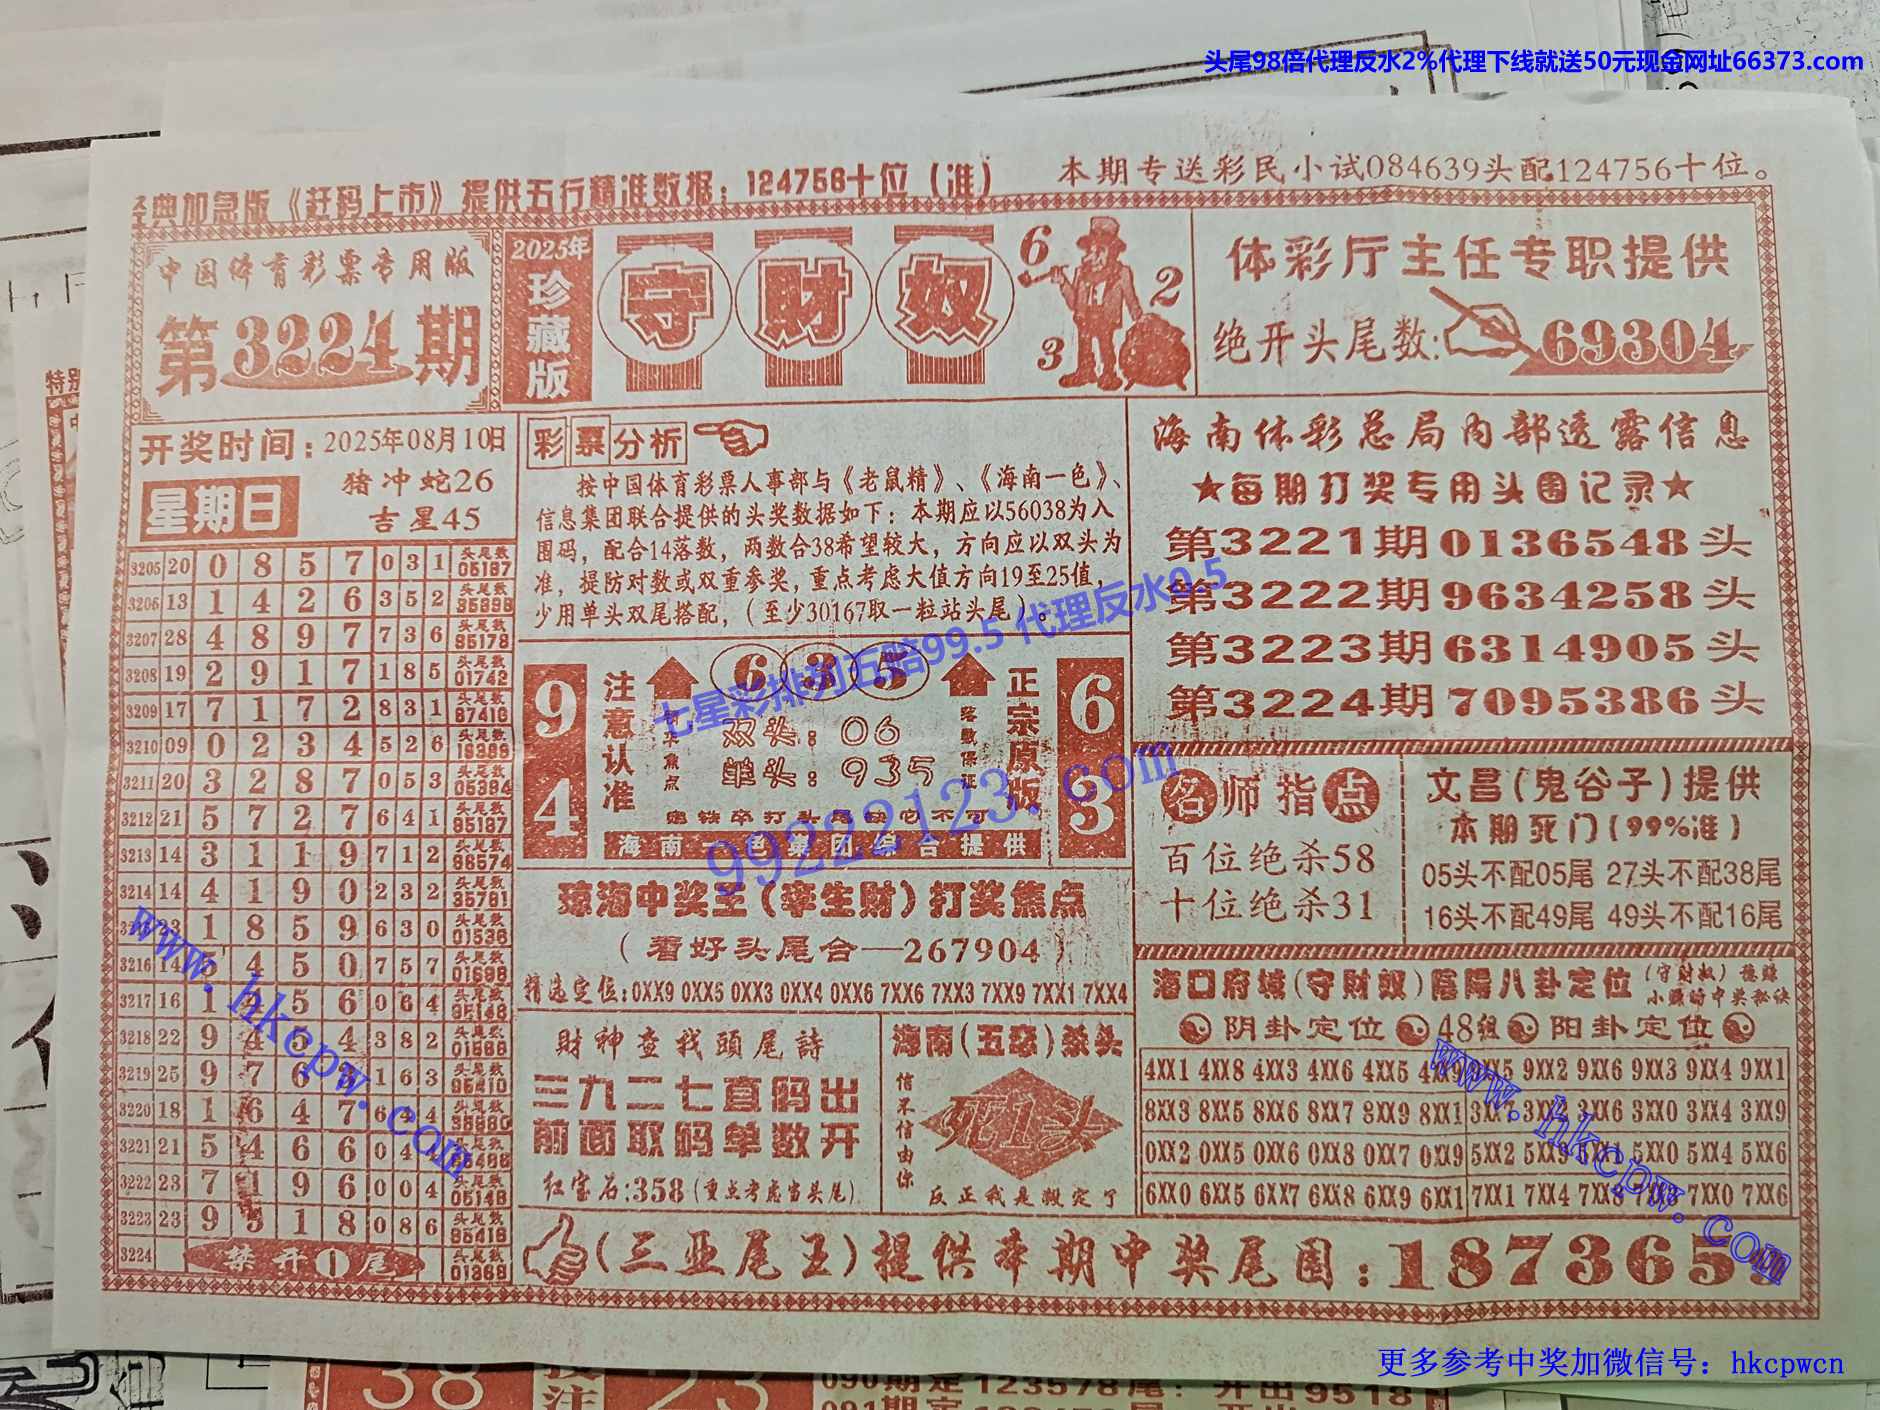 头尾98倍代理反水2%代理下线就送50元现金网址66373.com
经典加急版《赶码上市》提供五行精准数据：124756十位（准）
本期专送彩民小试084639头配124756十位。
中国体育彩票专用版
第3224期
2025年
珍藏版
守财奴
6
2
3
体彩厅主任专职提供
绝开头尾数:69304
开奖时间：2025年08月10日
星期日
猪冲蛇26
吉星45
3205 20 0 8 5 7 0 3 1 头尾数 05187
3206 13 1 4 2 6 3 5 2 头尾数
3207 28 4 8 9 7 7 3 6 头尾数 85178
3208 19 2 9 1 7 1 8 5 头尾数 01742
3209 17 7 1 7 2 8 3 1 头尾数 87410
3210 09 0 2 3 4 5 2 6 头尾数
3211 20 3 2 8 7 0 5 3 头尾数 05384
3212 21 5 7 2 7 6 4 1 头尾数 85187
3213 14 3 1 1 9 7 1 2 头尾数 96574
3214 14 4 1 9 0 2 3 2 头尾数 35781
23 1 8 5 9 6 3 0 头尾数 01536
3216 14 5 4 5 0 7 5 7 头尾数 01698
3217 16 1 4 5 6 0 6 4 头尾数
3218 22 9 4 5 4 3 8 2 头尾数
3219 25 9 7 6 1 6 3 头尾数 95410
3220 18 1 6 4 7 6 4 4 头尾数
3221 21 5 4 6 6 0 4 头尾数
3222 23 7 1 9 6 0 0 4 头尾数 05148
3223 23 9 3 1 8 0 8 6 头尾数 95418
3224 禁开0尾 头尾数 01369
彩票分析
按中国体育彩票人事部与《老鼠精》、《海南一色》、
信息集团联合提供的头奖数据如下：本期应以56038为入
围码，配合14落数，两数合38希望较大，方向应以双头为
准，提防对数或双重参奖，重点考虑大值方向19至25值，
少用单头双尾搭配，（至少30167取一粒站头尾）。
94
注意认准
635
双头：06
单头：935
落数保证
正宗原版
63
海南一色集团综合提供
七星彩排列五赔99.5 代理反水0.5
99222123.com
琼海中奖王（孪生财）打奖焦点
（看好头尾合—267904）
精选定位:0XX9 0XX5 0XX3 0XX4 0XX6 7XX6 7XX3 7XX9 7XX1 7XX4
財神查我頭尾詩
三九二七直码出
前面取码单数开
红宝石:358(重点考虑当头尾)
海南(五恋)杀头
信不信由你
死1头
反正我是搬定了
海南体彩总局内部透露信息
★每期打奖专用头围记录★
第3221期0136548头
第3222期9634258头
第3223期6314905头
第3224期7095386头
名师指点
百位绝杀58
十位绝杀31
文昌(鬼谷子)提供
本期死门(99%准)
05头不配05尾 27头不配38尾
16头不配49尾 49头不配16尾
海口府城(守财奴)陰陽八卦定位
阴卦定位 48组 阳卦定位
4XX1 4XX8 4XX3 4XX6 4XX5 4XX9 9XX5 9XX2 9XX6 9XX3 9XX4 9XX1
8XX3 8XX5 8XX6 8XX7 8XX9 8XX1 3XX7 3XX6 3XX0 3XX4 3XX9
0XX2 0XX5 0XX6 0XX8 0XX7 0XX9 5XX2 5XX9 5XX1 5XX0 5XX4 5XX6
6XX0 6XX5 6XX7 6XX8 6XX9 6XX1 7XX1 7XX4 7XX8 7XX0 7XX6
(三亚尾王)提供本期中奖尾围：1873659
www.hkcpw.com
www.hkcpw.com
更多参考中奖加微信号：hkcpwcn
38
投注
23
090期定123578尾：开出9518